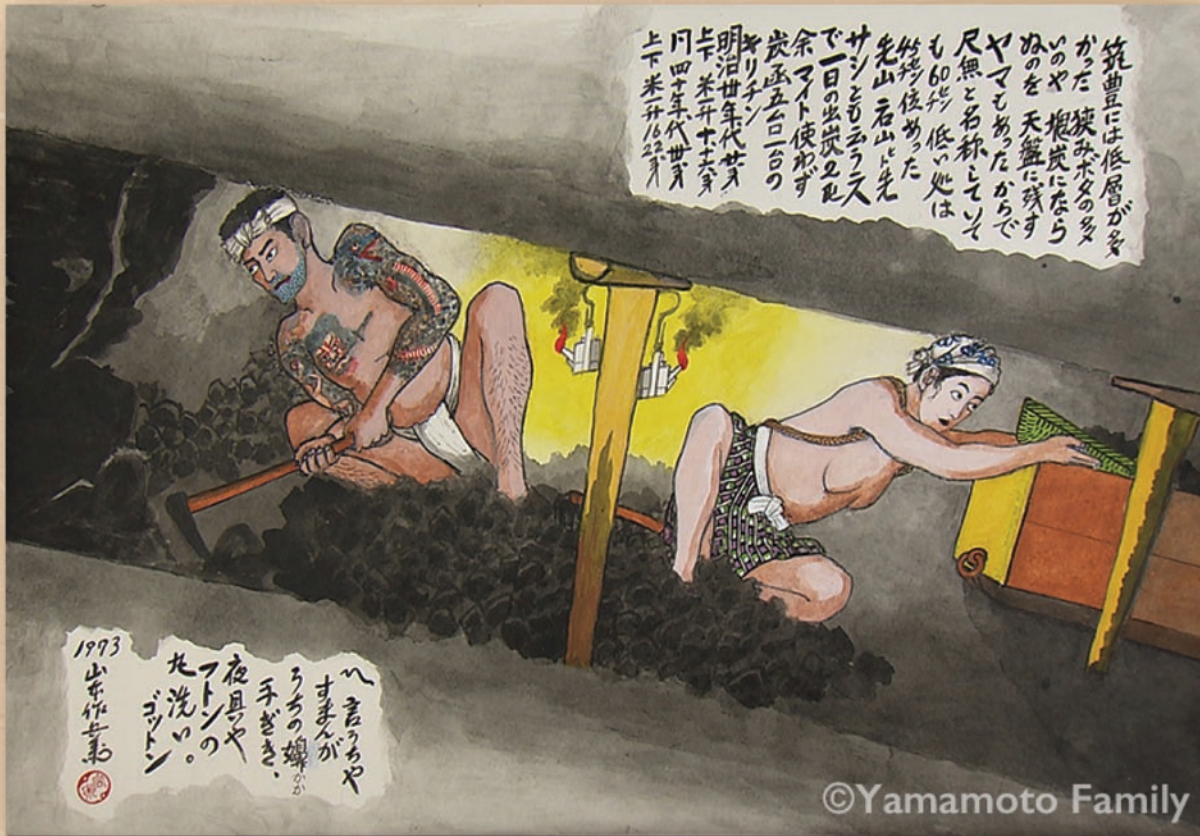 筑豊には低層が多
かった 狭みボタの多
いのや 塊炭になら
ぬのを 天盤に残す
ヤマもあったからで
尺無と名称していて
も60センチ 低い処は
45センチ位あった
先山 右山ヒト先
サシとも云ラニス
で一日の出炭2瓲
余 マイト使わず
炭函五台一台の
キリチン
明治卅年代廿〆
上下 米一升十六〆
円四十年代卅〆
上下 米一升16〆22〆
〽言うちや
すまんが
うちの嬶かか
手ぎき、
夜具や
フトンの
丸洗い。
ゴットン
1973
山本作兵衛
©Yamamoto Family